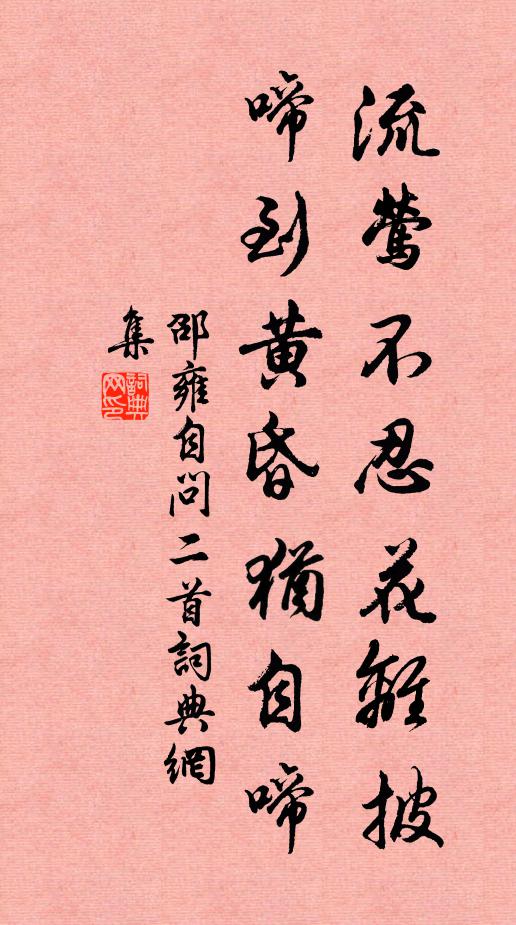 流莺不忍花離披
啼到黄昏猶自啼
邵雍自問二首詞典網
集
詞典網印